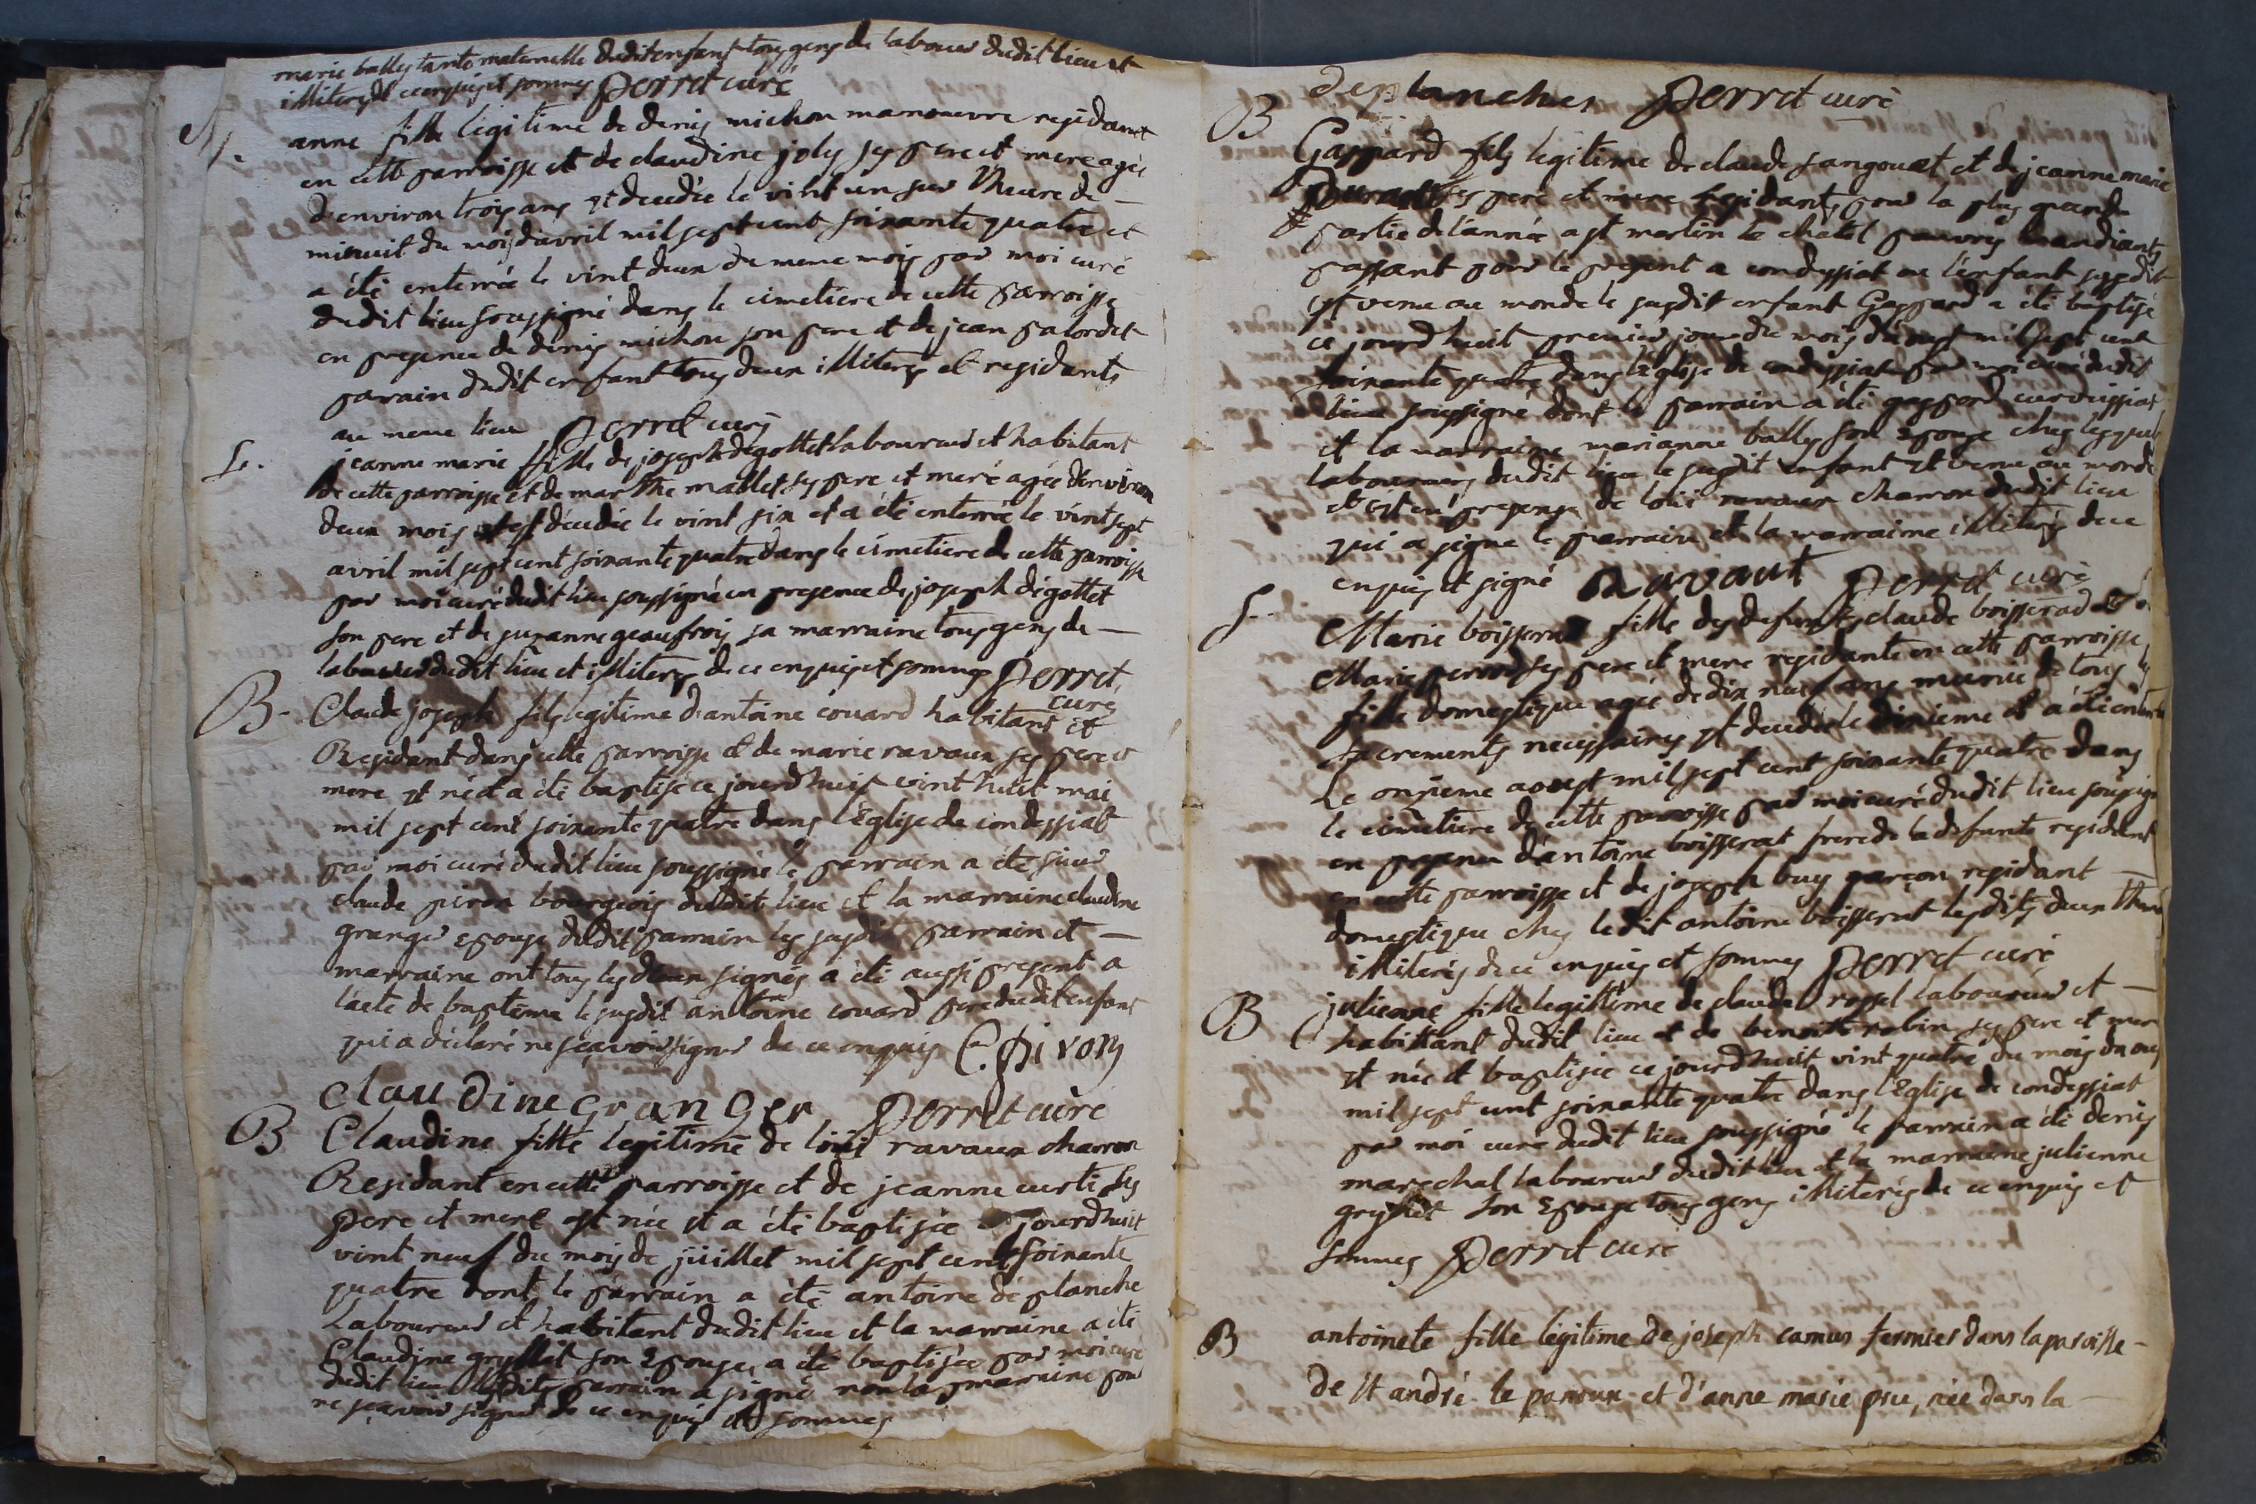 marie bally tante maternelle dudit enfant tous gens de labour dudit lieu et
illiterés de ce enquis et sommes Perret curé
anne fille legitime de denis michon manoeuvre residant
en cette parroisse et de claudine joly ses pere et mere agée
d'environ trois ans est decedée le vint un sur l'heure de
minuit du mois d'avril mil sept cent soixante quatre et
a été enterrée le vint deux du meme mois par moi curé
dudit lieu soussigné dans le cimetiere de cette parroisse
en presence de denis michon son pere et de jean palordet
parain dudit enfant tous deux illiterés et residants
au meme lieu Perret curé
S. jeanne marie fille de joseph degottet laboureur et habitant
de cette parroisse et de marthe mallet ses pere et mere agée d'environ
deux mois est décédée le vint six et a été enterrée le vint sept
avril mil sept cent soixante quatre dans le cimetiere de cette parroisse
par moi curé dudit lieu soussigné en presence de joseph dégottet
son pere et de suzanne geaufroy sa marraine tous gens de
labour dudit lieu et illiterés de ce enquis et sommes Perret
curé
B. Claude joseph fils legitime d'antoine couard habitant et
Residant dans cette parroisse et de marie ravaux ses pere et
mere est né et a été baptisé ce jourd'huit vint huit mai
mil sept cent soixante quatre dans l'Eglise de condessiat
par moi curé dudit lieu soussigné le parrain a été sieur
claude piron bourgeois dudit lieu et la marraine claudine
granger epouse dudit parrain les susdit parrain et
marraine ont tous les deux signés a été aussi present a
l'acte de baptême le susdit antoine couard pere dudit enfant
qui a déclaré ne sçavoir signer de ce enquis C. piron
claudine granger Perret curé
B Claudine fille legitime de loüis ravaux charron
Residant en cette parroisse et de jeanne curti ses
pere et mere est née et a été baptisée ce jourd'huit
vint neuf du mois de juillet mil sept cent soixante
quatre dont le parrain a été antoine déplanche
Laboureur et habitant dudit lieu et la marraine a été
Claudine gryllet son Epouse, a été baptisée par moi curé
dudit lieu lesdits parrain a signé non la marraine pour
ne sçavoir signer de ce enquis et sommes
deplanches Perret curé
B Gaspard fils legitime de claude jangouat et de jeanne marie
Durand ses pere et mere residants pour la plus grande
partie de l'année a st martin le chatel pauvres mandiants
passant pour le present a condessiat ou l'enfant susdit
est venu au monde le susdit enfant Gaspard a été baptisé
ce jourd'huit premier jour du mois d'aoust mil sept cent
soixante quatre dans l'Eglise de condessiat par moi curé dudit
lieu soussigné dont le parrain a été gaspard curvissiat
et la marraine marianne bally son Epouse chez lesquels
laboureurs dudit lieu le susdit enfant est venu au monde
et c'est en presence de loüis ravaux charron dudit lieu
qui a signé le parrain et la marraine illiterés de ce
enquis et signé Ravaut Perret curé
S. Marie boisserat fille des defunts claude boisserad et
Marie perrod ses pere et mere residante en cette parroisse
fille domestique agée de dix neuf ans munie de tous les
sacrements necessaires est decedée le dixieme et a été enterrée
Le onzieme aoust mil sept cent soixante quatre dans
le cimetiere de cette parroisse par moi curé dudit lieu soussigné
en presence d'antoine boisserat frere de la defunte residant
en cette parroisse et de joseph buy garçon residant
domestique chez ledit antoine boisserat lesdits deux
illiterés de ce enquis et sommes Perret curé
B julienne fille legittime de claude rossel laboureur et
habittant dudit lieu et de benoite robin ses pere et mere
est née et baptisée ce jourd'huit vint quatre du mois d'aoust
mil sept cent soixante quatre dans l'Eglise de condessiat
par moi curé dudit lieu soussigné le parrain a été denis
marechal laboureur dudit lieu et la marraine julienne
son Epouse tous gens illiterés de ce enquis et
sommes Perret curé
B antoinete fille légitime de joseph camus fermier dans la paroisse
de st andré le panoux et d'anne marie pru, née dans la